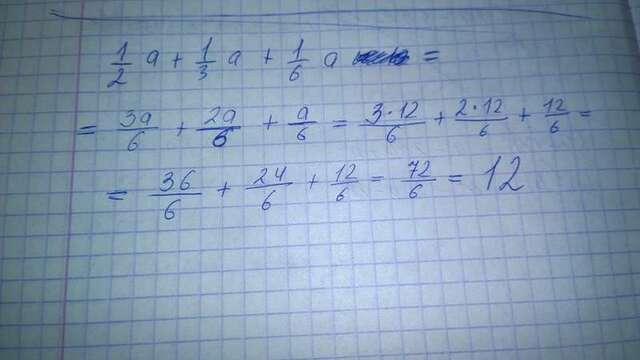 1/2 a + 1/3 a + 1/6 a =
= 3a/6 + 2a/6 + a/6 = 3·12/6 + 2·12/6 + 12/6 =
= 36/6 + 24/6 + 12/6 = 72/6 = 12